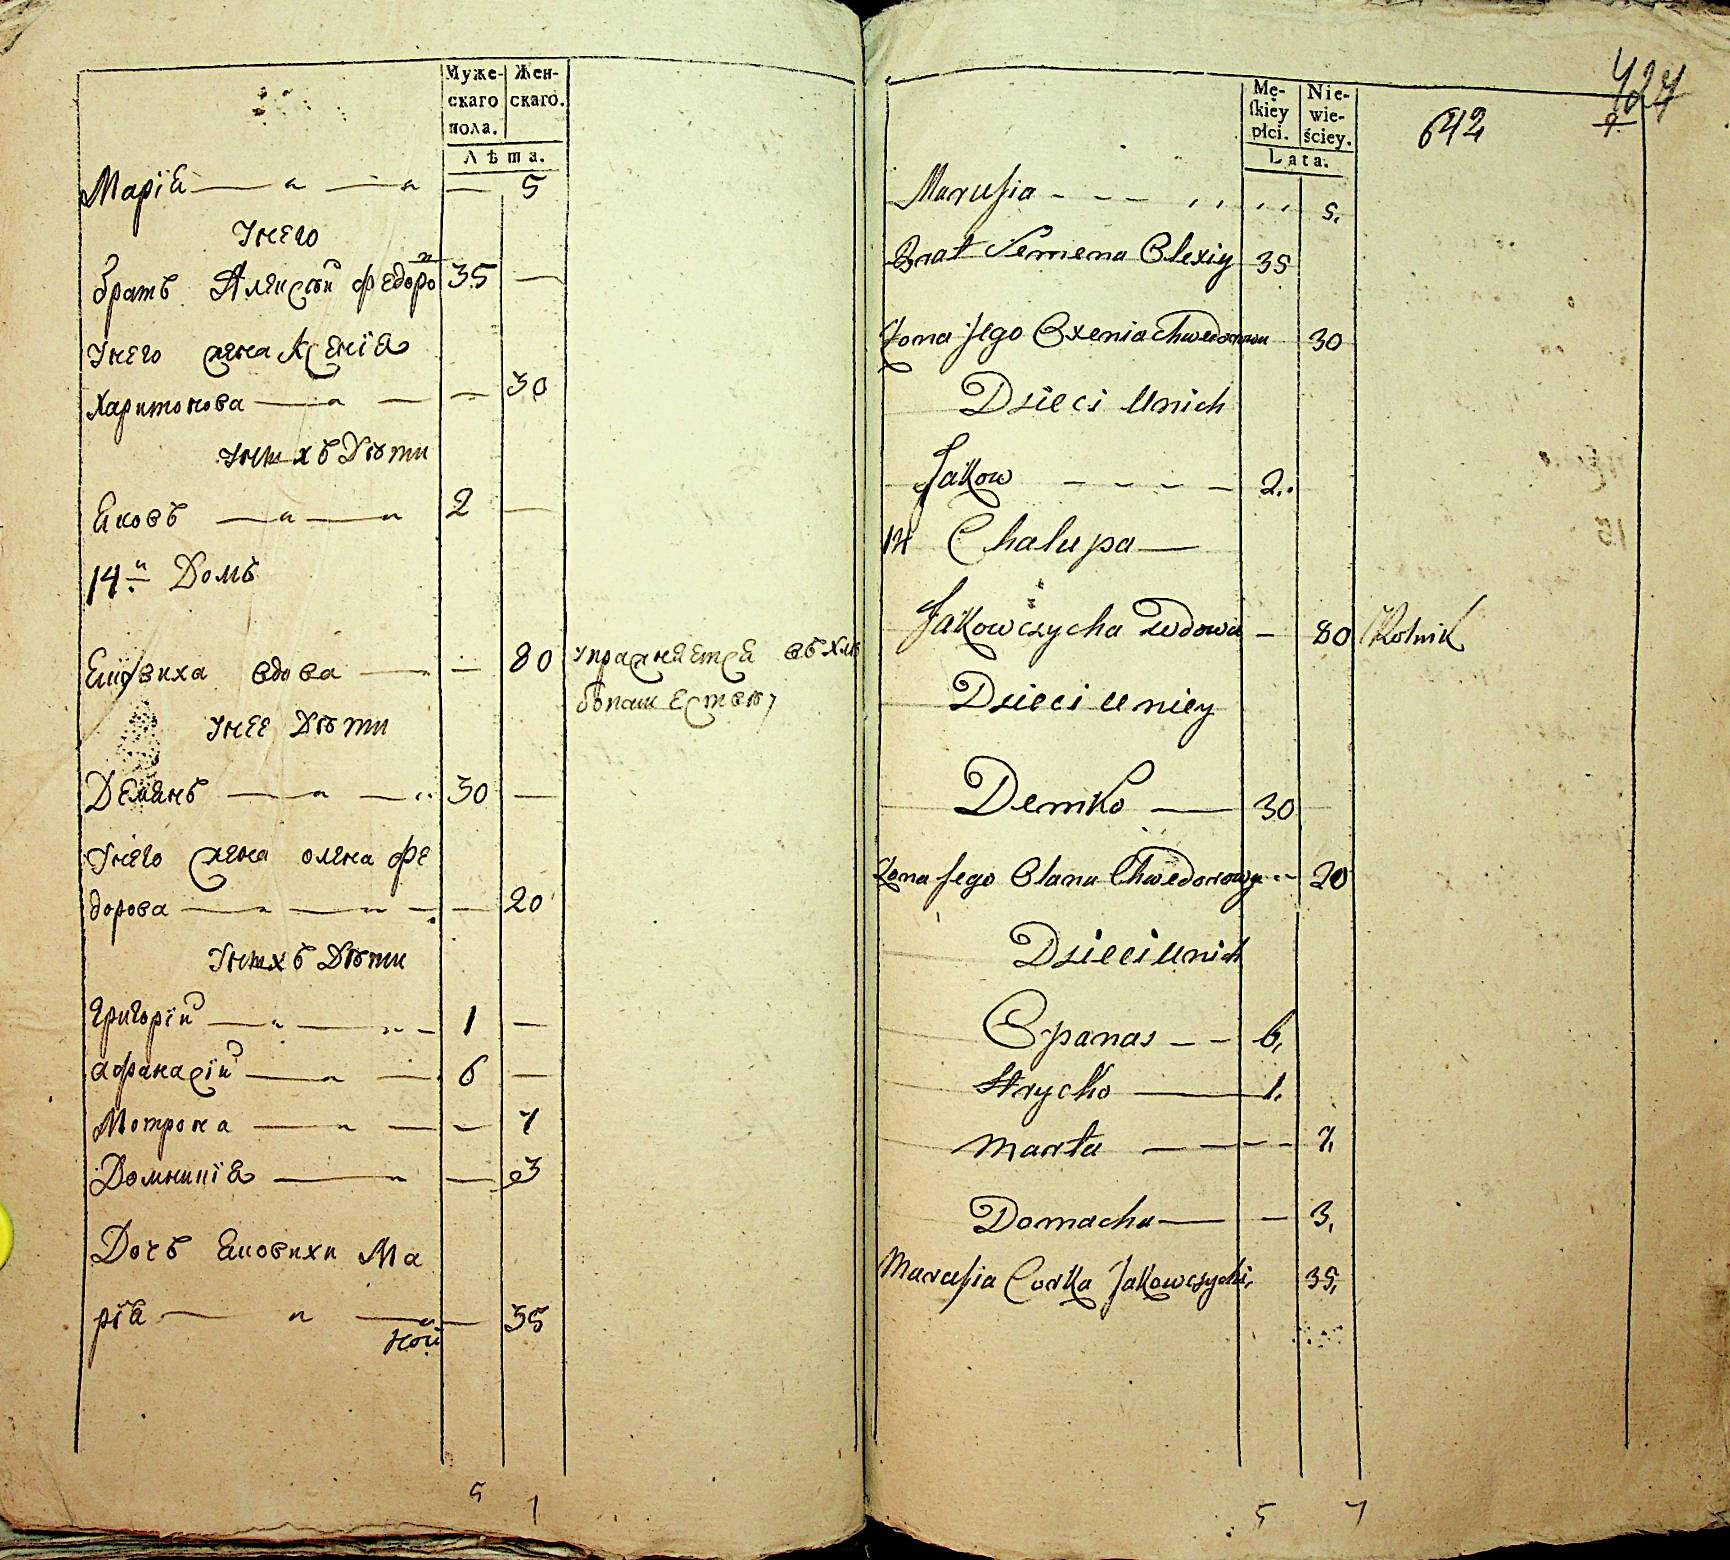 Муже-
скаго
пола.
Жен-
скаго.
Лѣта.
Марїя — 5
Унего
братъ Алексѣй федоро 35 —
Унего жена Ксенїя
Харитонова — — 30
Унихъ Дѣти
Яковъ — 2 —
14й Домъ
Яковиха вдова — — 80 упражняется въ хлѣ
бопашествѣ
Унее Дѣти
Демянъ — 30 —
Унего жена олена фе
дорова — — 20
Унихъ Дѣти
Григорїй — 1 —
афанасїй — 6 —
Мотрона — — 7
Домникїя — — 3
Дочъ Яковихи Ма
рїя — — 35
5 7
Mę-
skiey
płci.
Nie-
wie-
ściey.
Lata.
642
Marusia - - - 5.
Brat Semena Olexiy 35
Zona Jego Oxenia Chwedorowa 30
Dzieci Unich
Jakow - - - - - 2.
14 Chalupa —
Jakowczycha Wdowa — 80 Rolnik
Dzieci U niey
Demko — 30
Zona Jego Olana Chwedorowa - - 20
Dzieci Unich
Opanas - - 6,
Hrycko — 1.
Marta — - - - 7,
Domacha — — 3,
Marusia Corka Jakowczychi, 35,
5 7